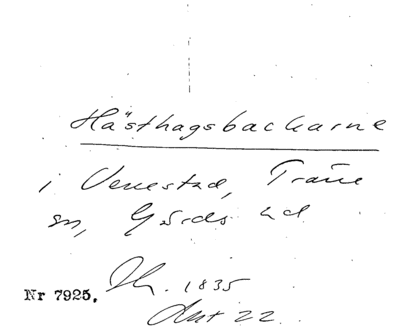 Hästhagsbackarne
i Venestad, Träne
sn, Gärds hd
Nr 7925. 1835
Akt 22.